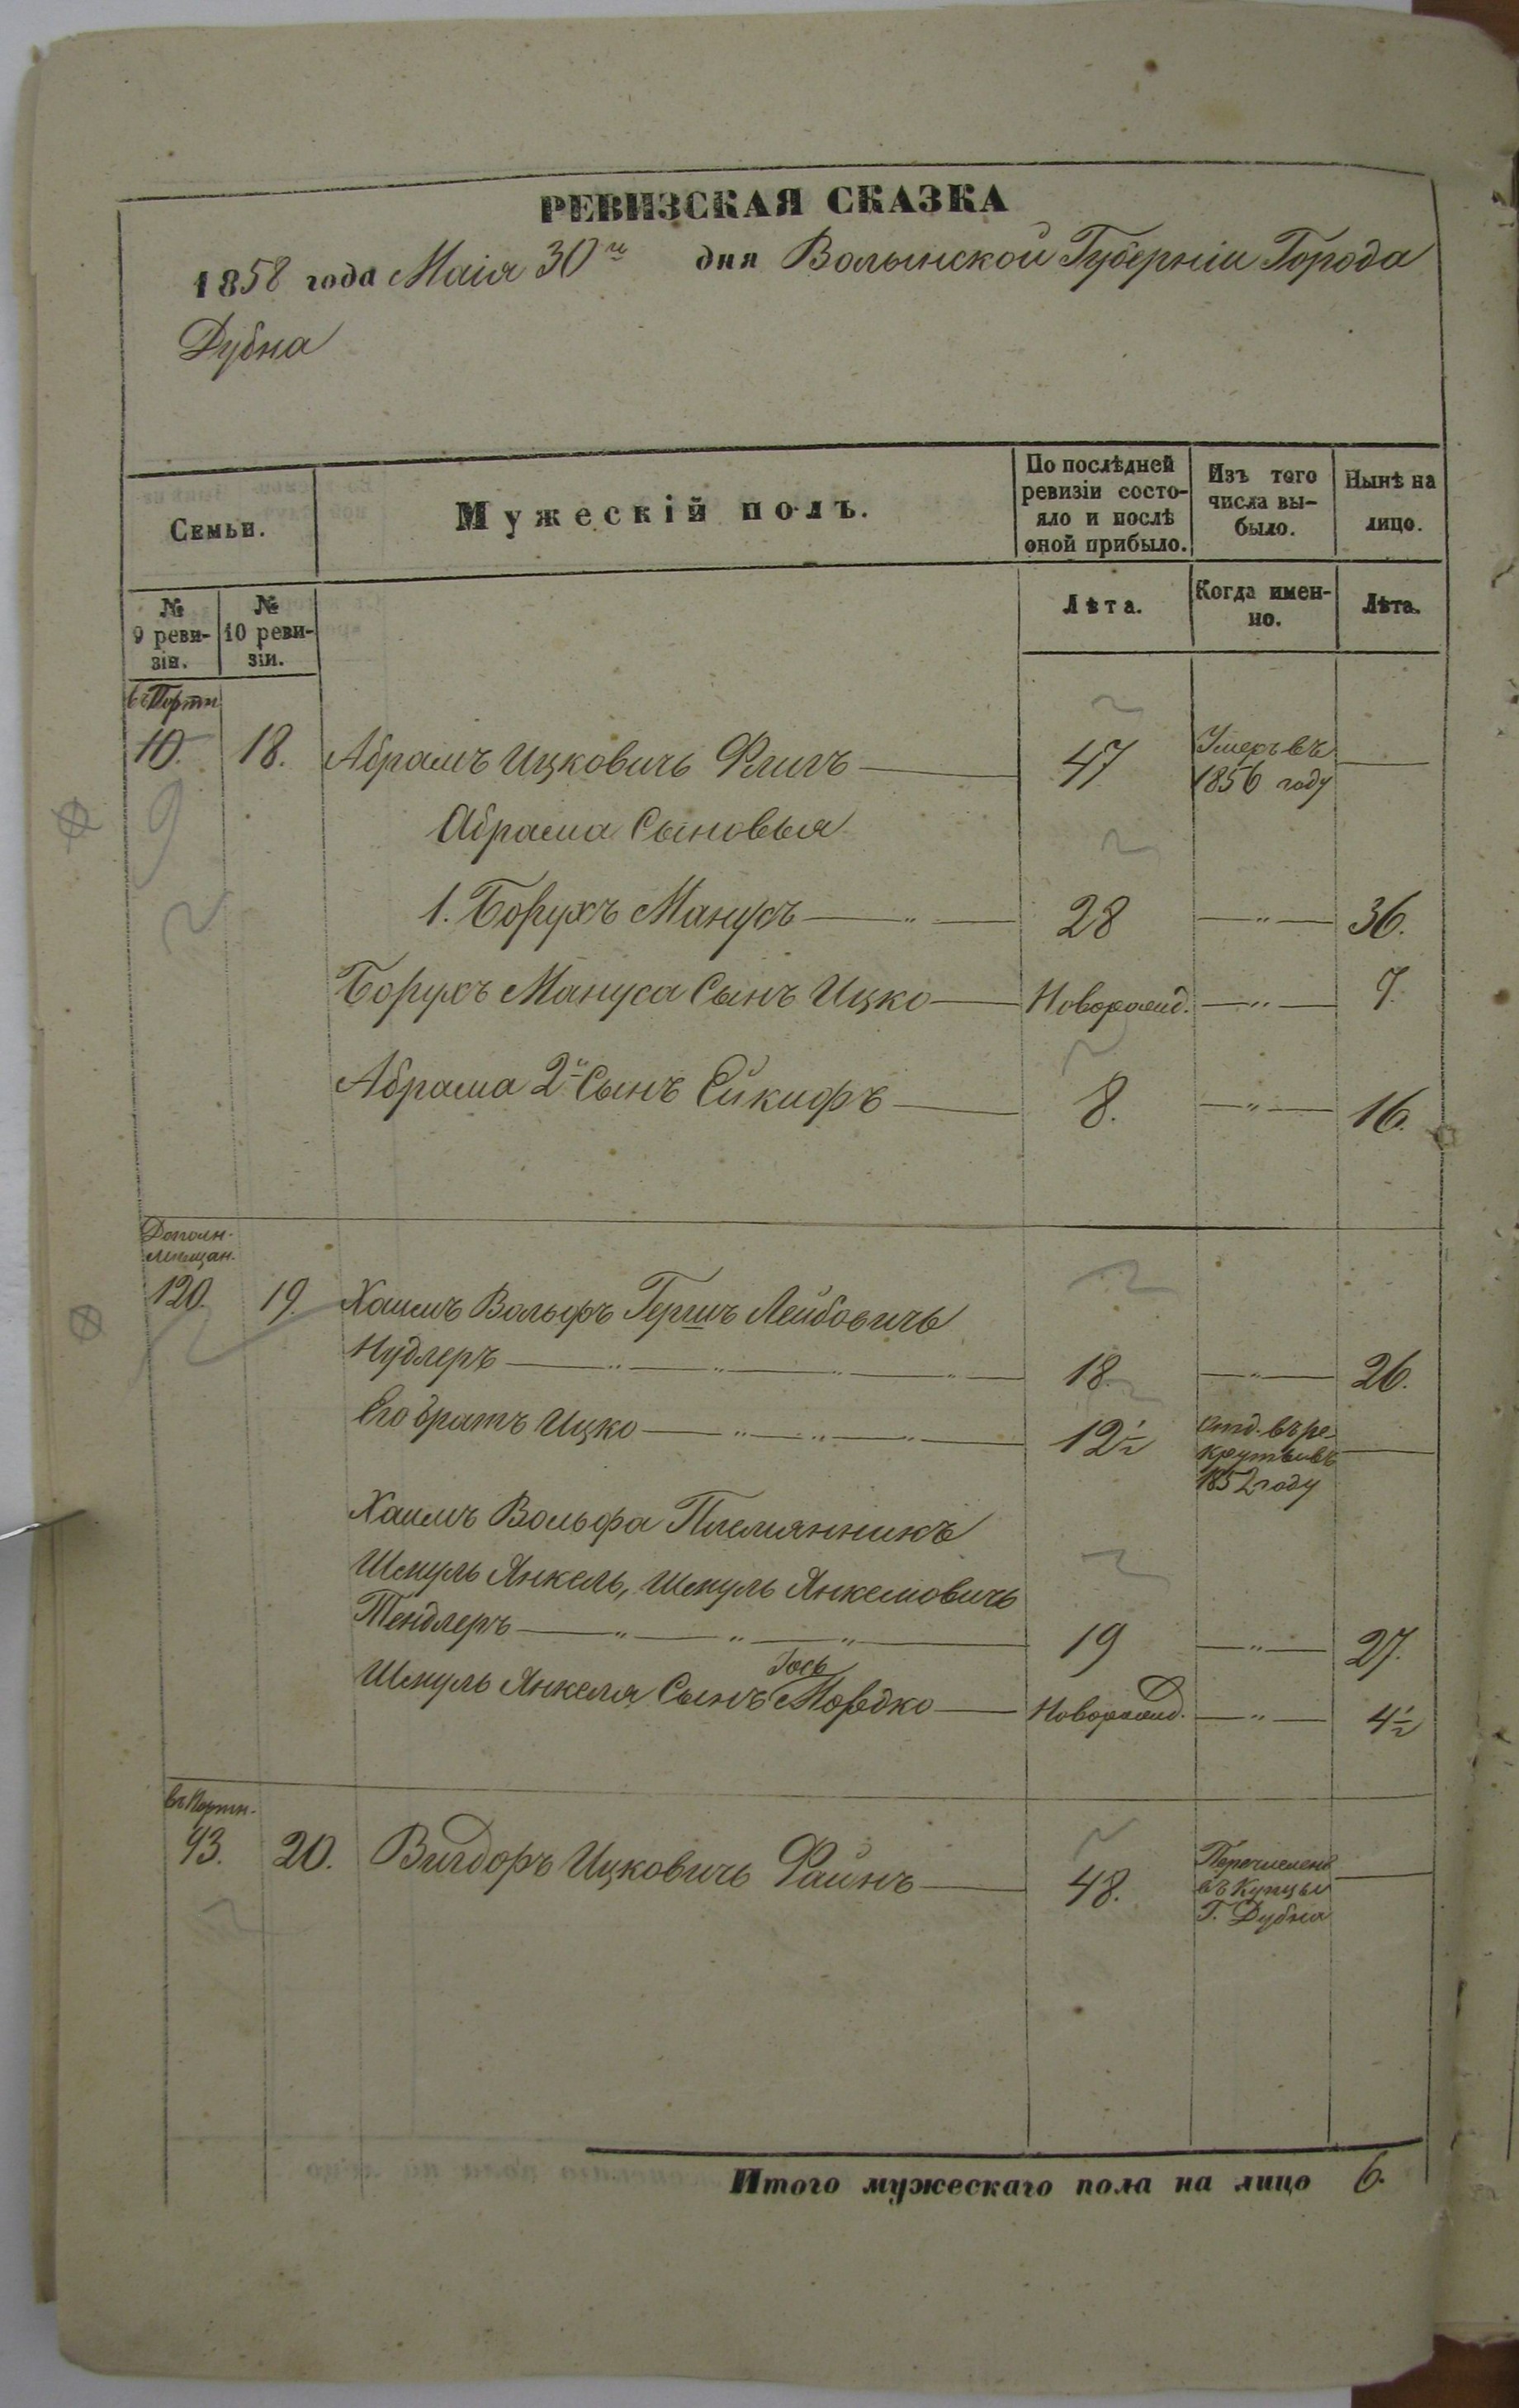 РЕВИЗСКАЯ СКАЗКА
1858 года Маія 30го дня Волынской Губерніи Города
Дубна
Семьи.
Мужескій полъ.
По послѣдней ревизіи состо-
яло и послѣ
оной прибыло.
Изъ того
числа вы-
было.
Нынѣ на
лицо.
№
9 реви-
зіи.
№
10 реви-
зіи.
Лѣта.
Когда имен-
но.
Лѣта.
10. 18. Абрамъ Ицковичь 47 Умеръ въ
1856 году
Абрама Сыновья
1. Борухъ Манусъ 28 36.
Борухъ Мануса Сынъ Ицко Новорожд. 7.
Абрама 2й Сынъ 8. 16.
Дополн.
мѣщан.
120. 19. Хаимъ Вольфъ Гершъ Лейбовичь
Нудлеръ 18. 26.
Его братъ Ицко 12½ отд. въ ре-
круты въ
1852 году
Хаимъ Вольфа Племянникъ
Шмуль Янкель, Шмуль Янкелювичь
Тендлеръ 19 27.
Шмуль Янкеля Сынъ Мордко Новорожд. 4½
93. 20. Вигдоръ Ицковичь Файнъ 48. Перечисленъ
въ Купцы
Г. Дубна
Итого мужескаго пола на лицо 6.